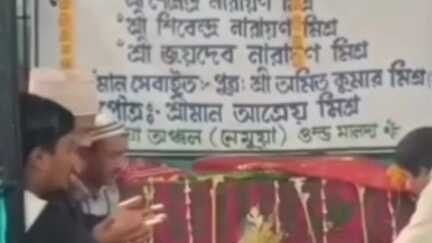 শ্রী শৈলেন্দ্র নারায়ণ মিশ্র
"শ্রী শিবেন্দ্র নারায়ণ মিশ্র
"শ্রী জয়দেব নারায়ণ মিশ্র
মান সেবাইত :- পুত্র : শ্রী অমিত কুমার মিশ্র
পৌত্র :- শ্রীমান আত্রেয় মিশ্র
অঞ্চল (নেমুয়া) ওল্ড মালদা